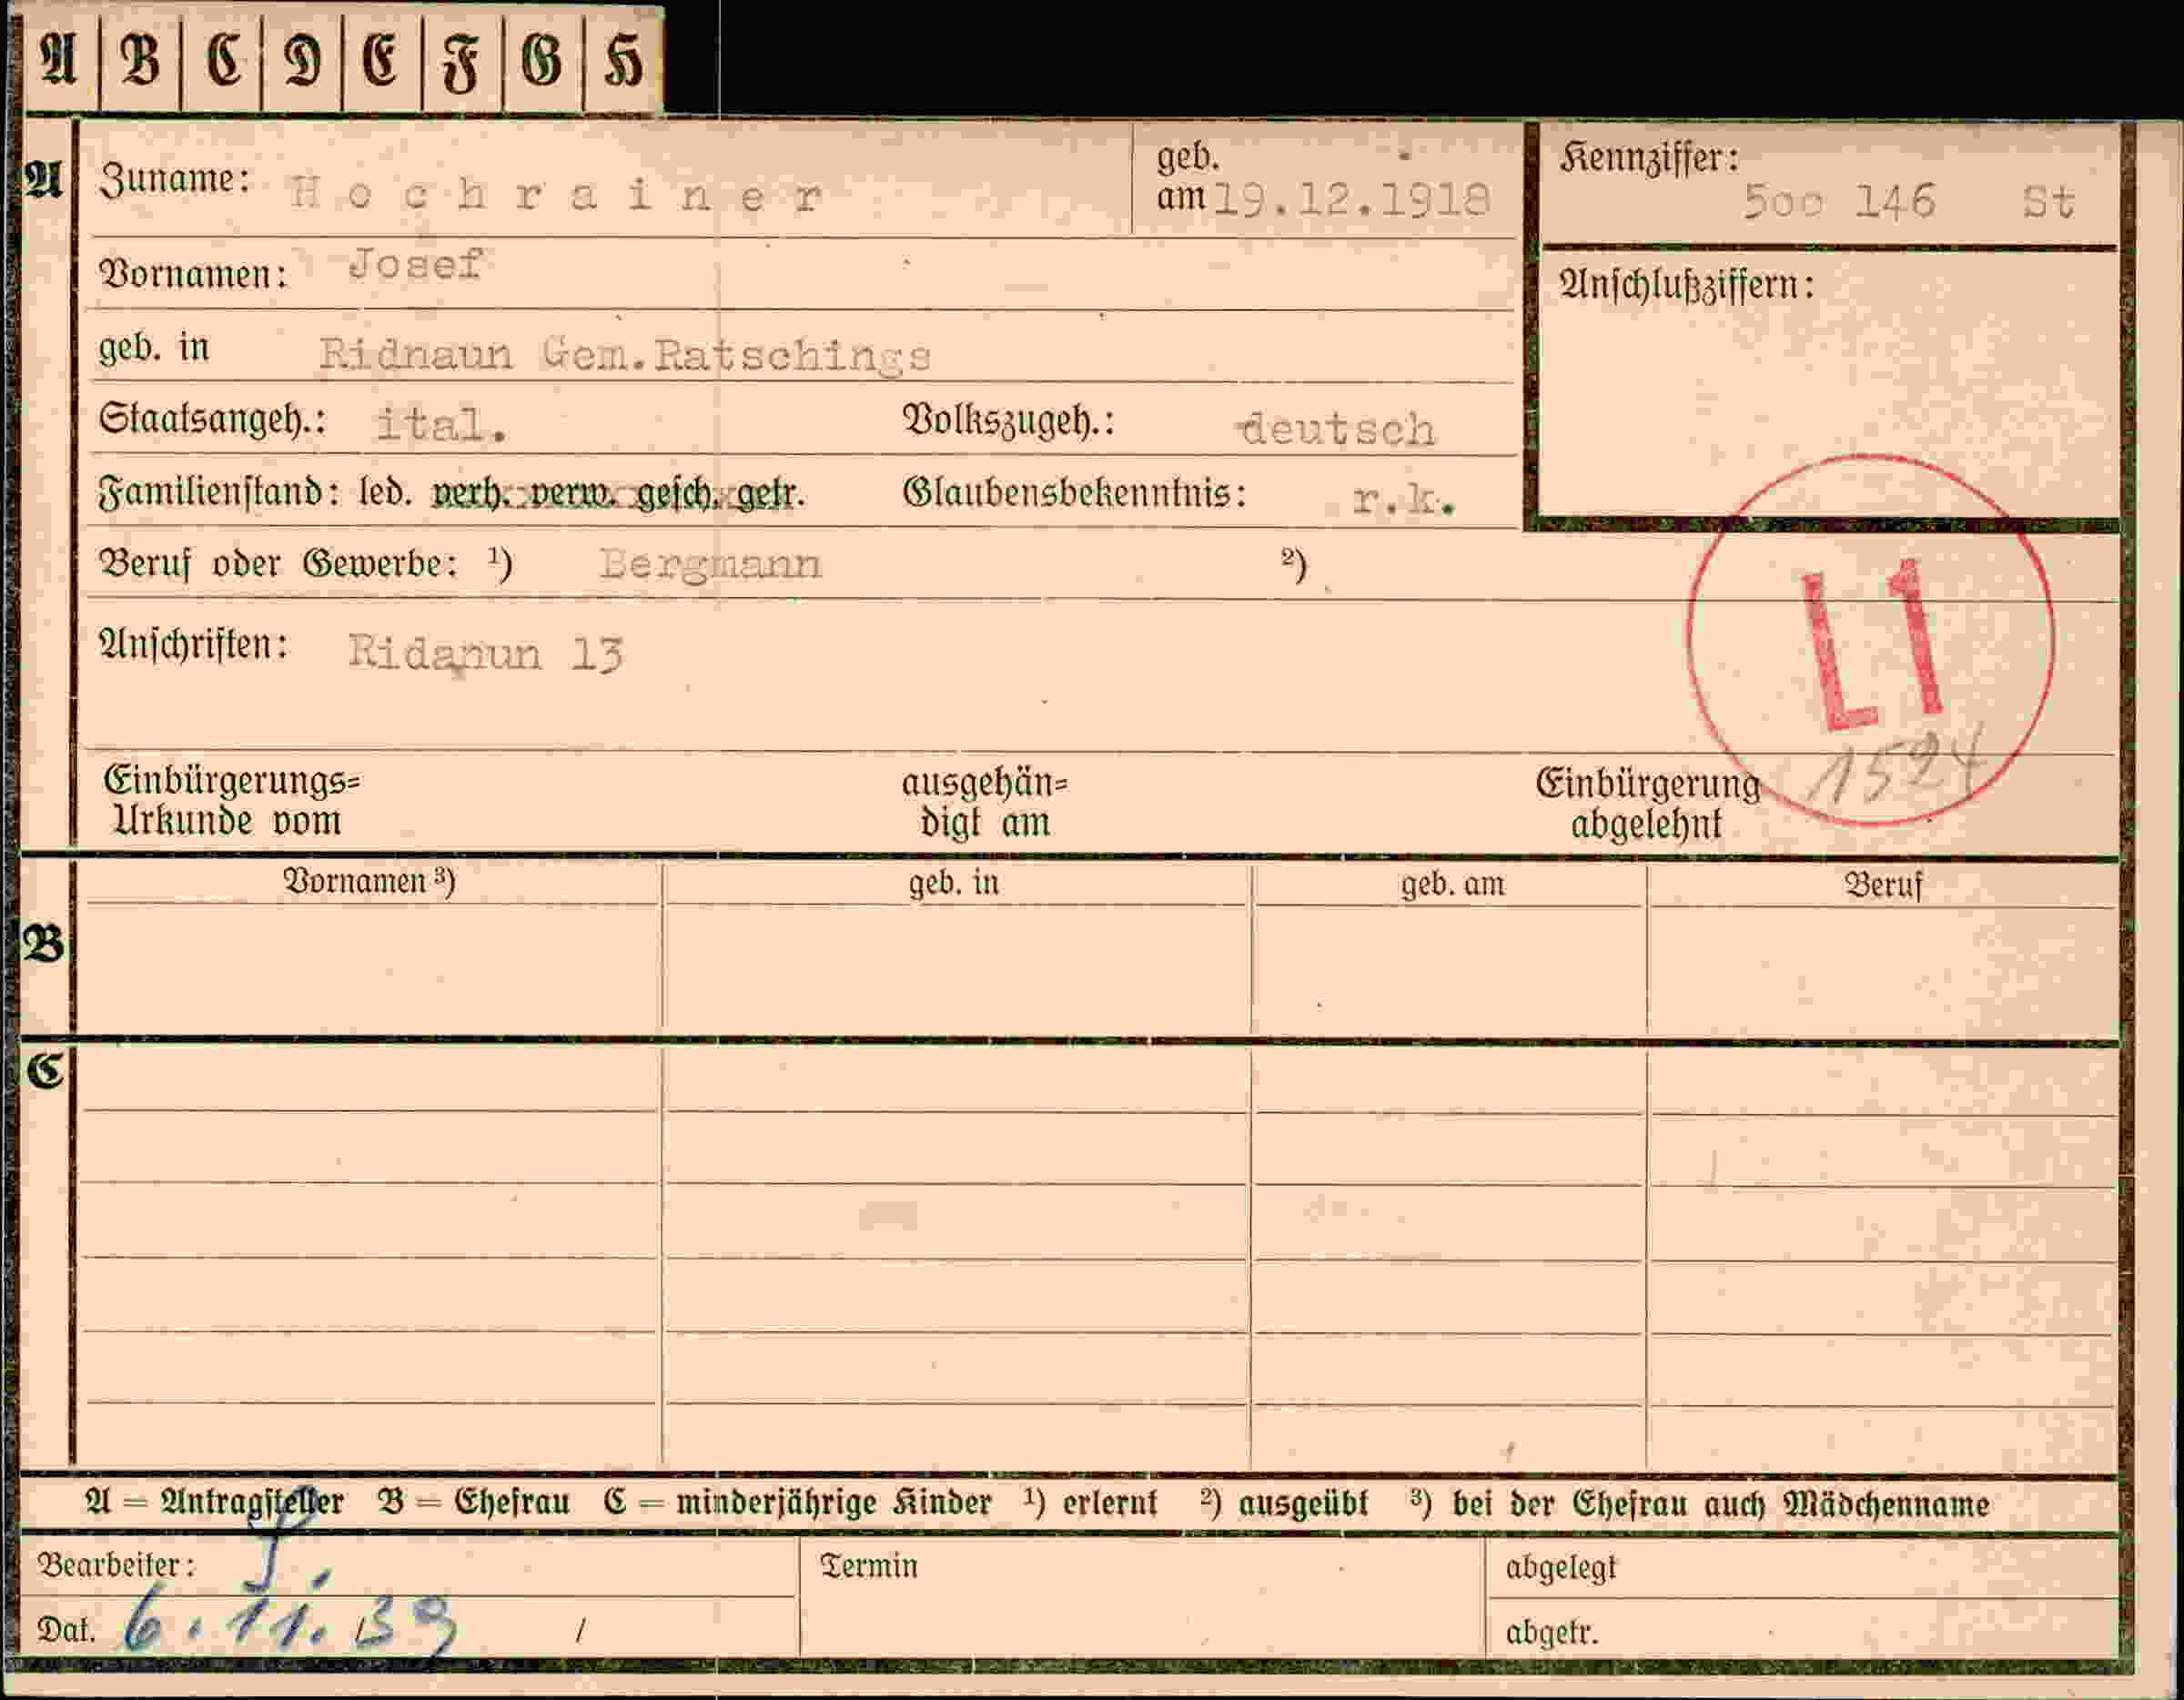 A B C D E F G H
A Zuname: Hochrainer geb. am 19.12.1918 Kennziffer: 5oo 146 St
Vornamen: Josef Anschlußziffern:
geb. in Ridnaun Gem.Ratschings
Staatsangeh.: ital. Volkszugeh.: deutsch
Familienstand: led. verh. verw. gesch. getr. Glaubensbekenntnis: r.k.
Beruf oder Gewerbe: ¹) Bergmann ²)
L1
Anschriften: Ridanun 13
1524
Einbürgerungs= ausgehän= Einbürgerung
Urkunde vom digt am abgelehnt
Vornamen ³) geb. in geb. am Beruf
B
C
A = Antragsteller B = Ehefrau C = minderjährige Kinder ¹) erlernt ²) ausgeübt ³) bei der Ehefrau auch Mädchenname
Bearbeiter: Termin abgelegt
Dat. 6.11.39 / abgetr.